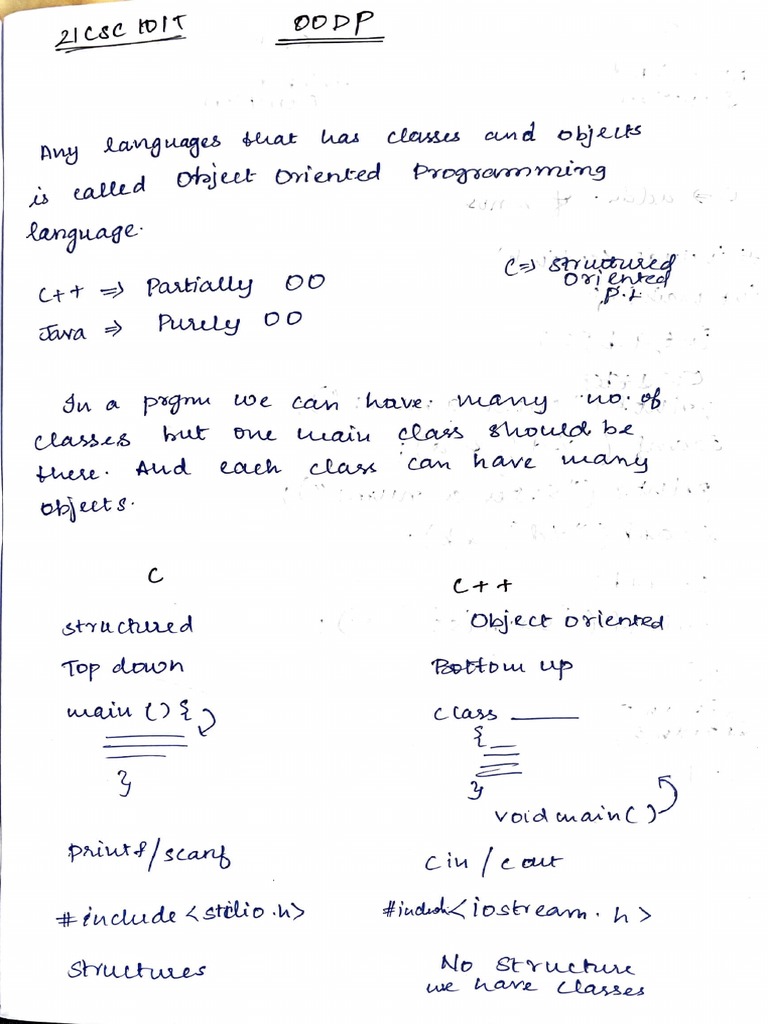 21CSC101T OODP
Any languages that has classes and objects
is called Object Oriented Programming
language.
C++ => Partially OO
Java => Purely OO
C => structured
Oriented
P.L
In a prgm we can have many no. of
classes but one main class should be
there. And each class can have many
objects.
C C++
structured Object oriented
Top down Bottom up
main () { class
{
} }
void main()
printf/scanf cin / cout
#include <stdio.h> #include <iostream.h>
structures No structure
we have classes